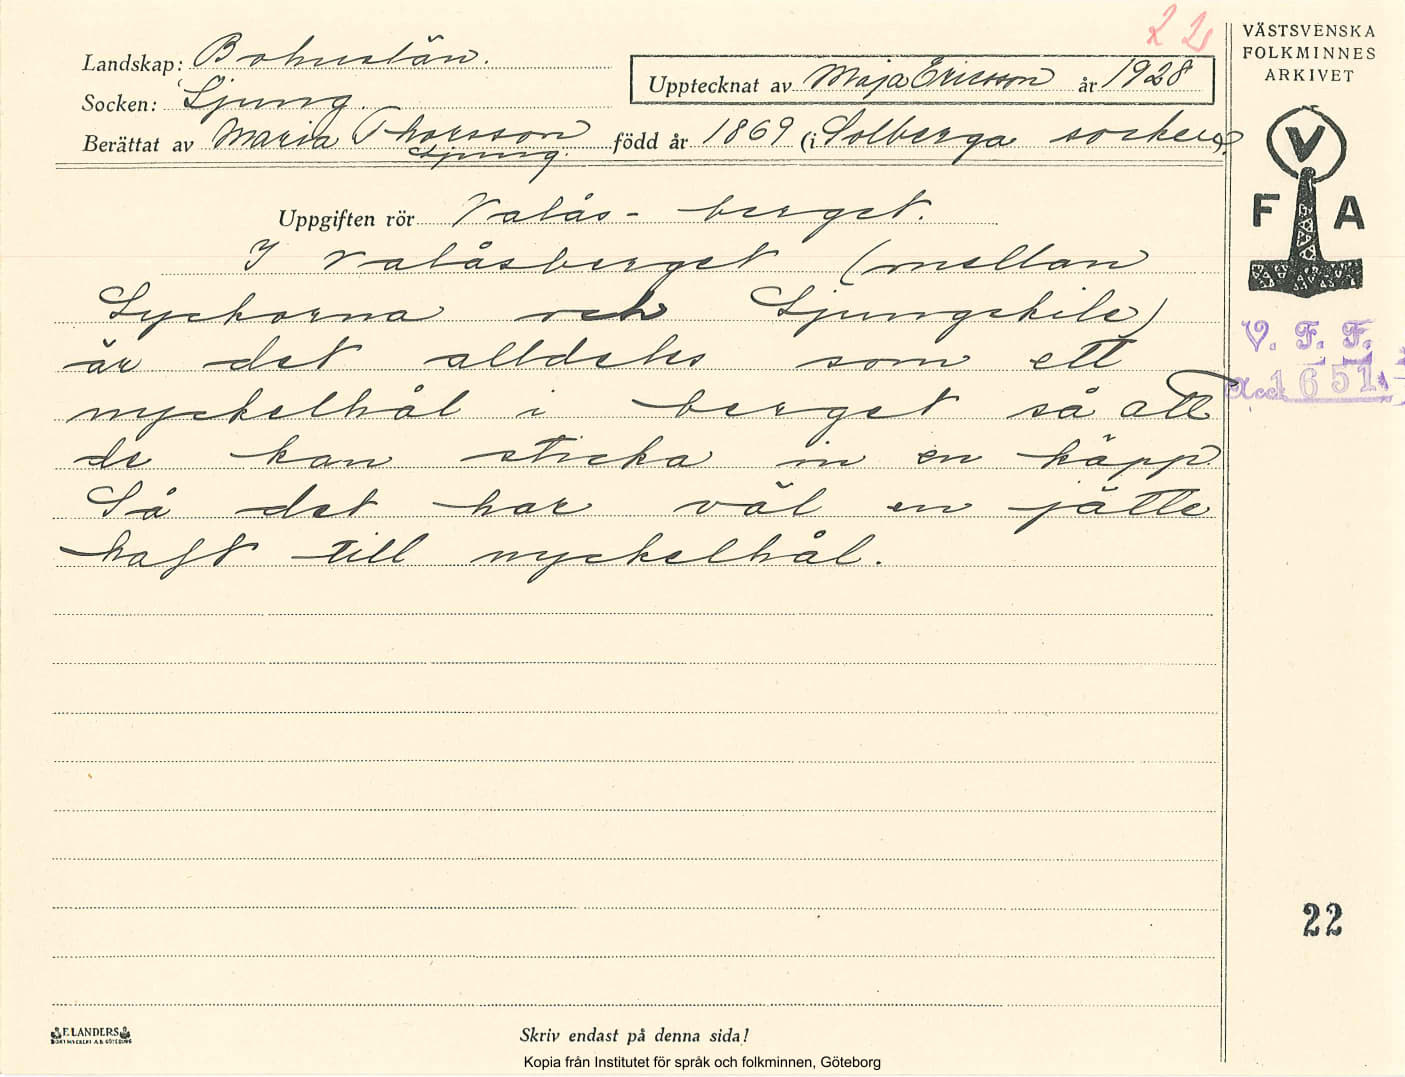 22
Landskap: Bohuslän.
Socken: Ljung.
Upptecknat av Maja Ericsson år 1928
Berättat av Maria Thorsson född år 1869 (i Solberga socken).
Ljung.
Uppgiften rör Valås-berget.
I Valåsberget (mellan
Lyckorna och Ljungskile)
är det alldeles som ett
nyckelhål i berget så att
de kan sticka in en käpp.
Så det har väl en jätte
haft till nyckelhål.
VÄSTSVENSKA
FOLKMINNES
ARKIVET
V
F A
V. F. F.
Acc. 1651
22
ELANDERS
Skriv endast på denna sida!
Kopia från Institutet för språk och folkminnen, Göteborg